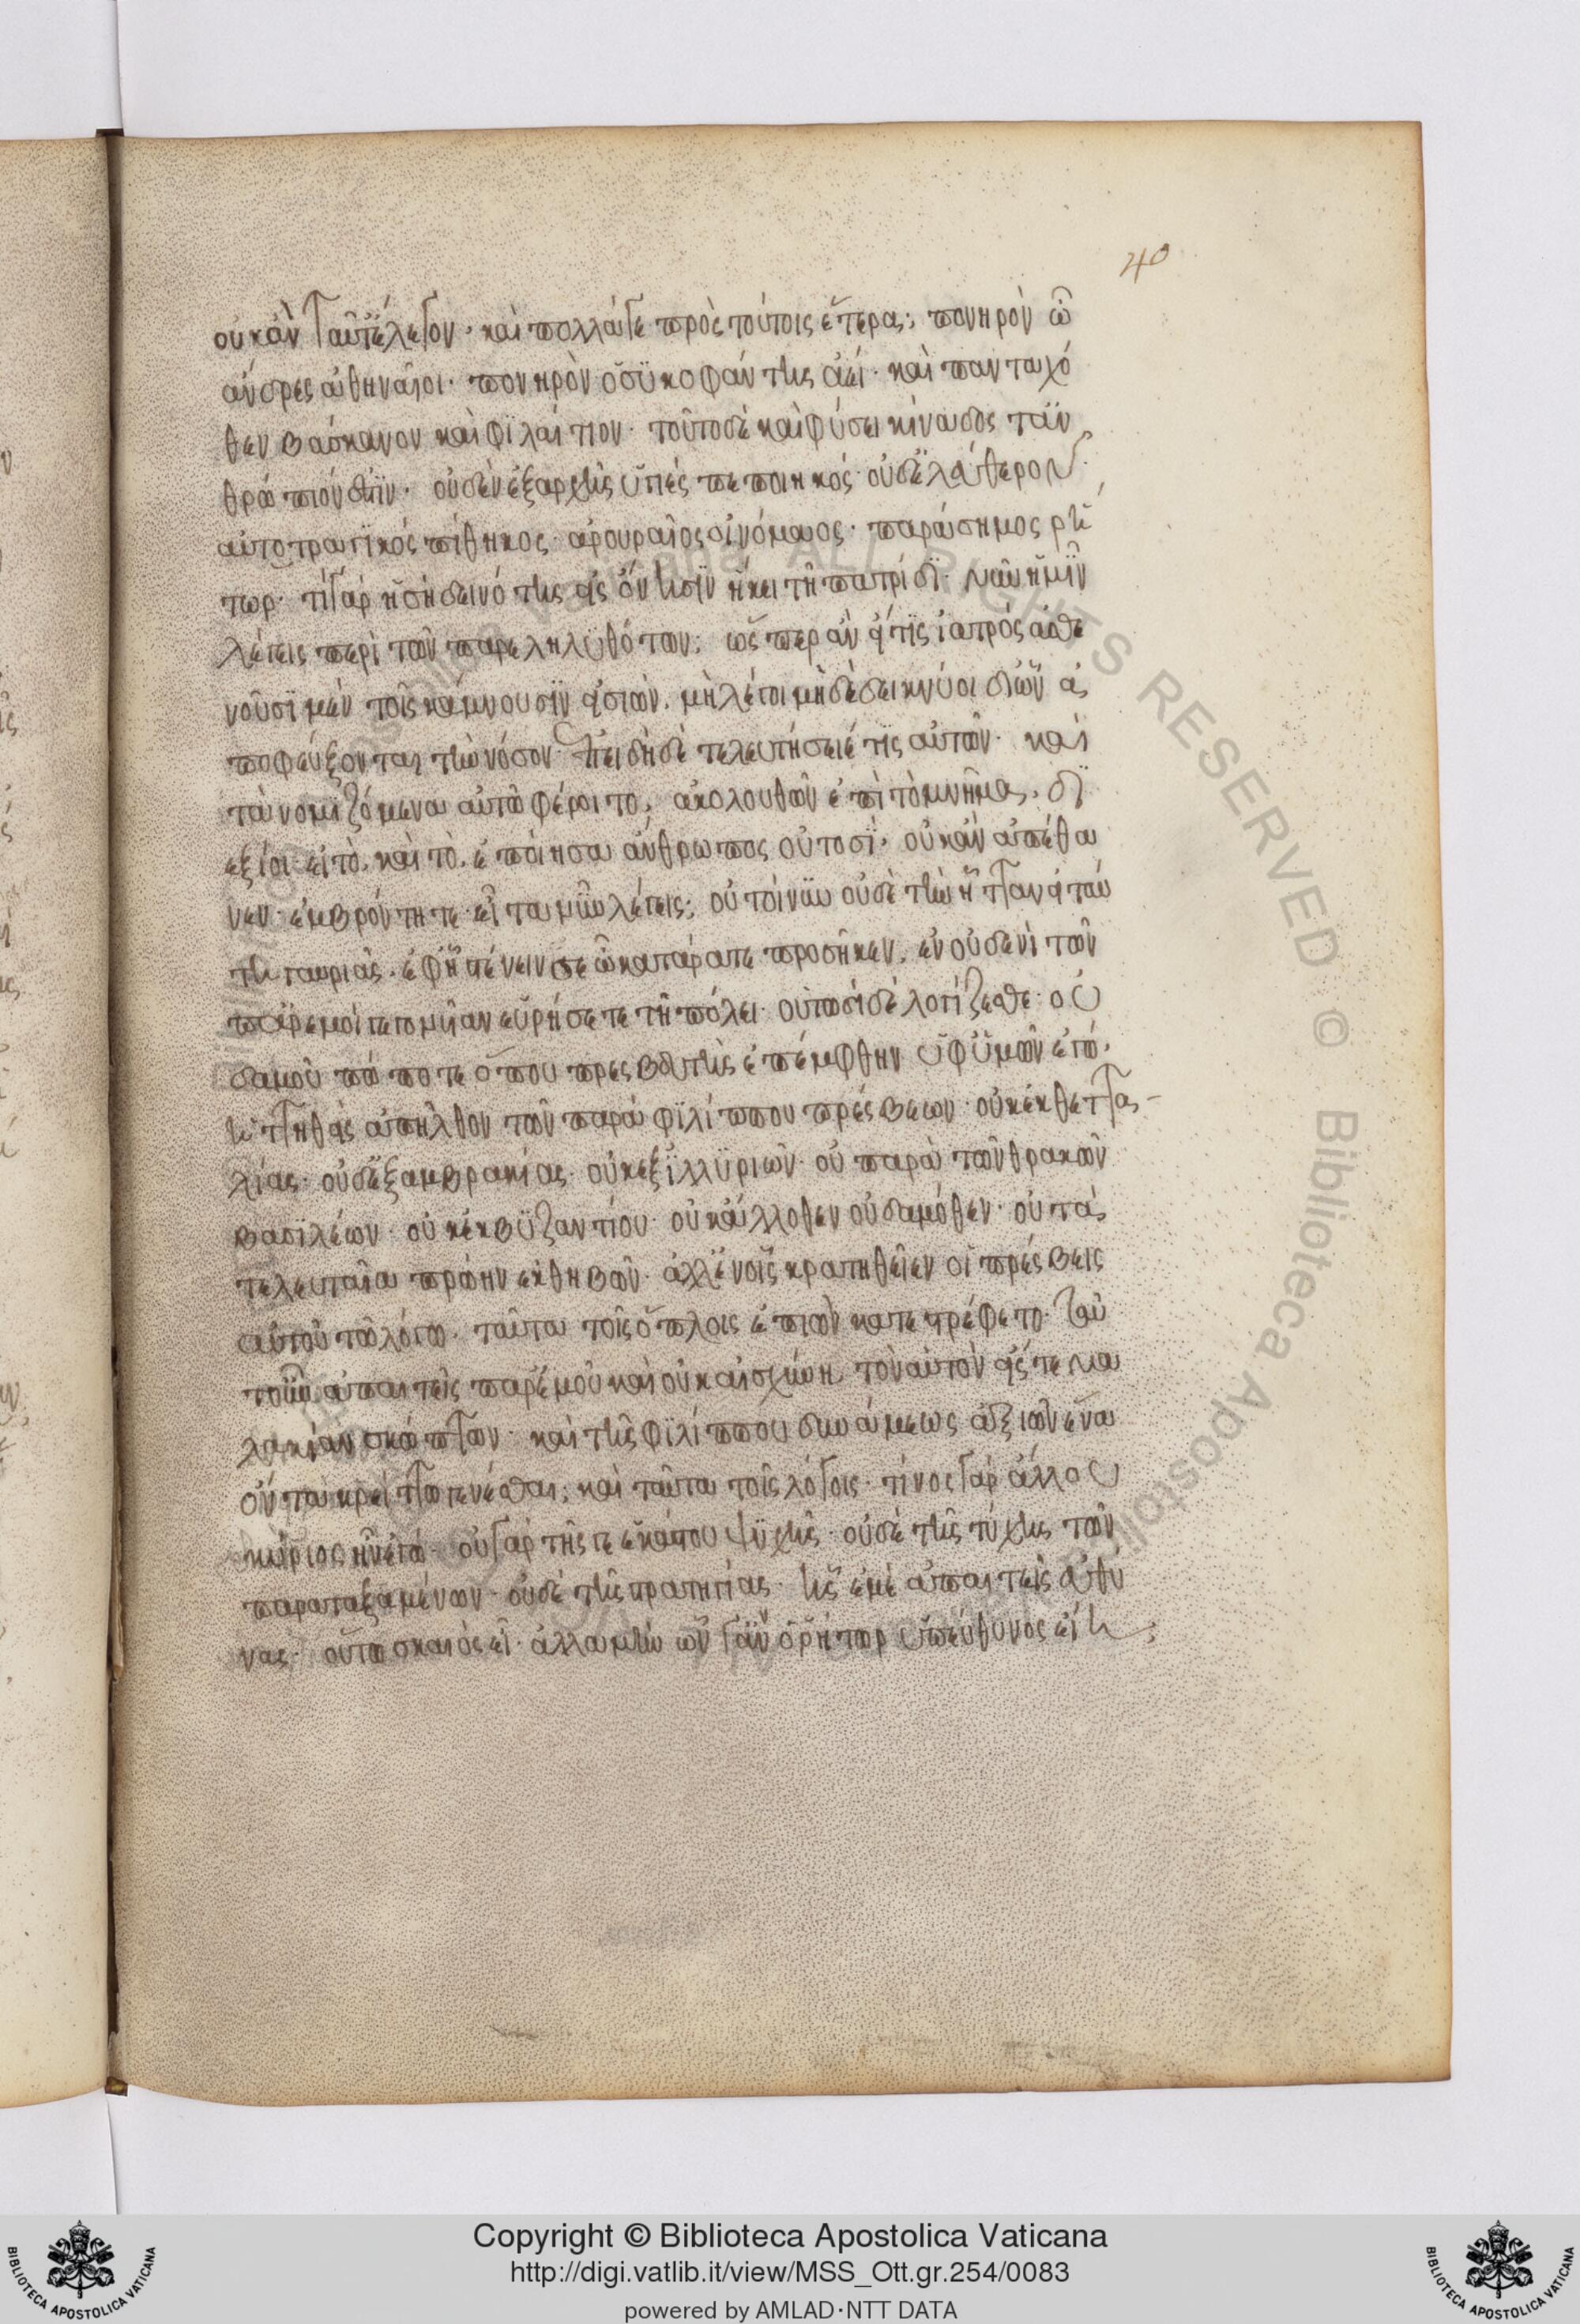 40
οὐκ ἂν ταῦτ' ἔλεγον· καὶ πολλά γε πρὸς τούτοις ἕτερα; πονηρὸν ὦ
ἄνδρες ἀθηναῖοι· πονηρὸν ὁ συκοφάντης ἀεί· καὶ πανταχό
θεν βάσκανον καὶ φιλαίτιον· τοῦτο δὲ καὶ φύσει κίναδος τἀν
θρώπιόν ἐστιν· οὐδὲν ἐξ ἀρχῆς ὑγιὲς πεποιηκός· οὐδ' ἐλεύθερον·
αὐτοτραγικὸς πίθηκος· ἀρουραῖος οἰνόμαος· παράσημος ῥή
τωρ· τί γὰρ ἡ σὴ δεινότης εἰς ὄνησιν ἥκει τῆ πατρίδι· νῦν ἡμῖν
λέγεις περὶ τῶν παρεληλυθότων; ὥσπερ ἂν εἴ τις ἰατρὸς ἀσθε
νοῦσι μὲν τοῖς κάμνουσιν εἰσιὼν. μὴ λέγοι μηδὲ δεικνύοι δι' ὧν ἀ
ποφεύξονται τὴν νόσον· ἐπειδὴ δὲ τελευτήσειέ τις αὐτῶν· καὶ
τὰ νομιζόμενα αὐτῶ φέροιτο, ἀκολουθῶν ἐπὶ τὸ μνῆμα, δι
εξίοι· εἰ τὸ. καὶ τὸ. ἐποίησα ἄνθρωπος οὑτοσὶ· οὐκ ἂν ἀπέθα
νεν· ἐμβρόντητε· εἶτα νῦν λέγεις; οὐ τοίνυν οὐδὲ τὴν ἧτταν εἰ ταύ
τη γαυριᾶς· ἐφ' ἧ στένειν σε ὦ κατάρατε προσῆκεν, ἐν οὐδενὶ τῶν
παρ' ἐμοὶ γεγονυῖαν εὑρήσετε τῆ πόλει· οὑτωσὶ δὲ λογίζεσθε· οὐ
δαμοῦ πώποτε ὅπου πρεσβευτὴς ἐπέμφθην ὑφ' ὑμῶν ἐγώ·
ἡττηθεὶς ἀπῆλθον τῶν παρὰ φιλίππου πρέσβεων· οὐκ ἐκ θεττα
λίας· οὐδ' ἐξ ἀμβρακίας· οὐκ ἐξ ἰλλυριῶν· οὐ παρὰ τῶν θρακῶν
βασιλέων· οὐκ ἐκ βυζαντίου· οὐκ ἄλλοθεν οὐδαμόθεν· οὐ τὰ
τελευταῖα πρώην ἐκ θηβῶν· ἀλλ' ἐν οἷς κρατηθεῖεν οἱ πρέσβεις
αὐτοῦ τῶ λόγω· ταῦτα τοῖς ὅπλοις ἐπιὼν κατεστρέφετο· ταῦ
τ' οὖν ἀπαιτεῖς παρ' ἐμοῦ καὶ οὐκ αἰσχύνη τὸν αὐτὸν εἴς τε μα
λακίαν σκώπτων· καὶ τῆς φιλίππου δυνάμεως ἀξιῶν ἕνα
ὄντα κρείττω γενέσθαι; καὶ ταῦτα τοῖς λόγοις· τίνος γὰρ ἄλλου
κύριος ἦν ἐγώ· οὐ γὰρ τῆς γε ἑκάστου ψυχῆς· οὐδὲ τῆς τύχης τῶν
παραταξαμένων· οὐδὲ τῆς στρατηγίας· ἧς ἐμὲ ἀπαιτεῖς εὐθύ
νας· οὕτω σκαιὸς εἶ· ἀλλὰ μὴν ὧν γ' ἂν ὁ ῥήτωρ ὑπεύθυνος εἴη;
ALL RIGHTS RESERVED © Biblioteca Apostolica Vaticana
Copyright © Biblioteca Apostolica Vaticana
http://digi.vatlib.it/view/MSS_Ott.gr.254/0083
powered by AMLAD·NTT DATA
BIBLIOTECA APOSTOLICA VATICANA
BIBLIOTECA APOSTOLICA VATICANA